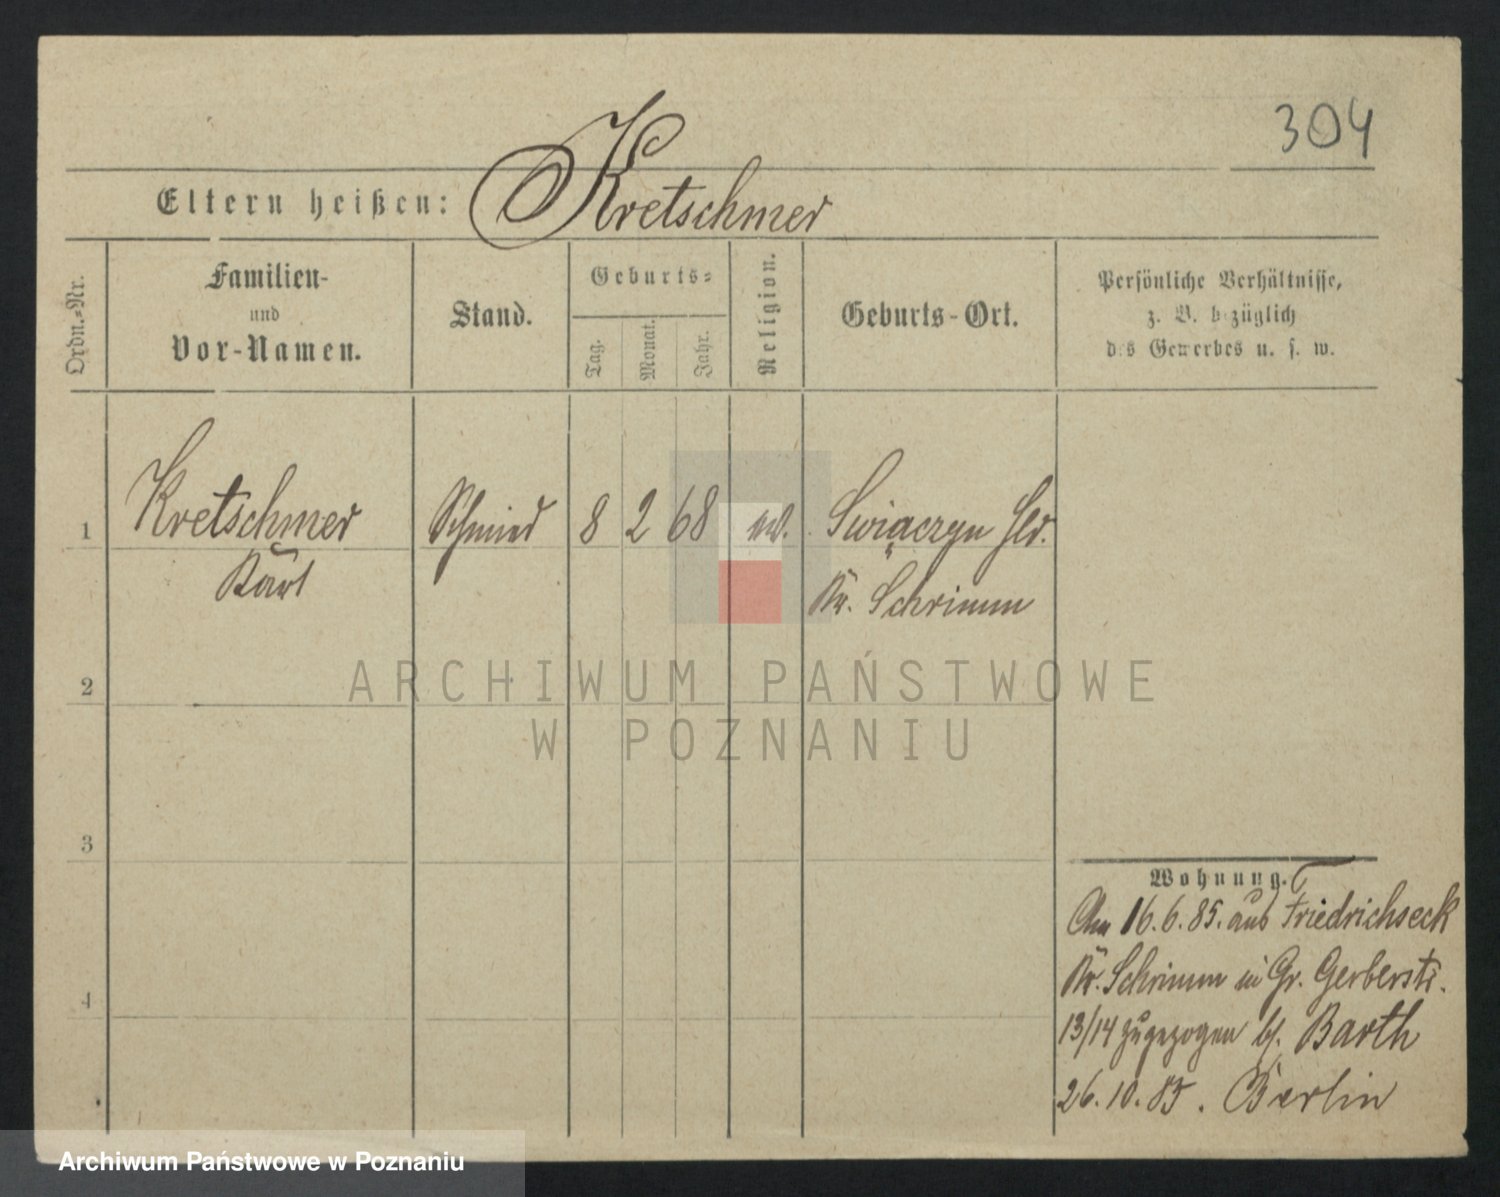 304
Eltern heißen: Kretschmer
Ordn.-Nr.
Familien-
und
Vor-Namen.
Stand.
Geburts-
Tag.
Monat.
Jahr.
Religion.
Geburts-Ort.
Persönliche Verhältnisse,
z. B. bezüglich
des Gewerbes u. s. w.
1 Kretschmer Schmied 8 2 68 ev. Swiączyn Hld.
Karl Kr. Schrimm
2
3
4
Wohnung.
Am 16.6.85. aus Friedrichseck
Kr. Schrimm in Gr. Gerberstr.
13/14 zugezogen bei Barth
26.10.85. Berlin
ARCHIWUM PAŃSTWOWE
W POZNANIU
Archiwum Państwowe w Poznaniu